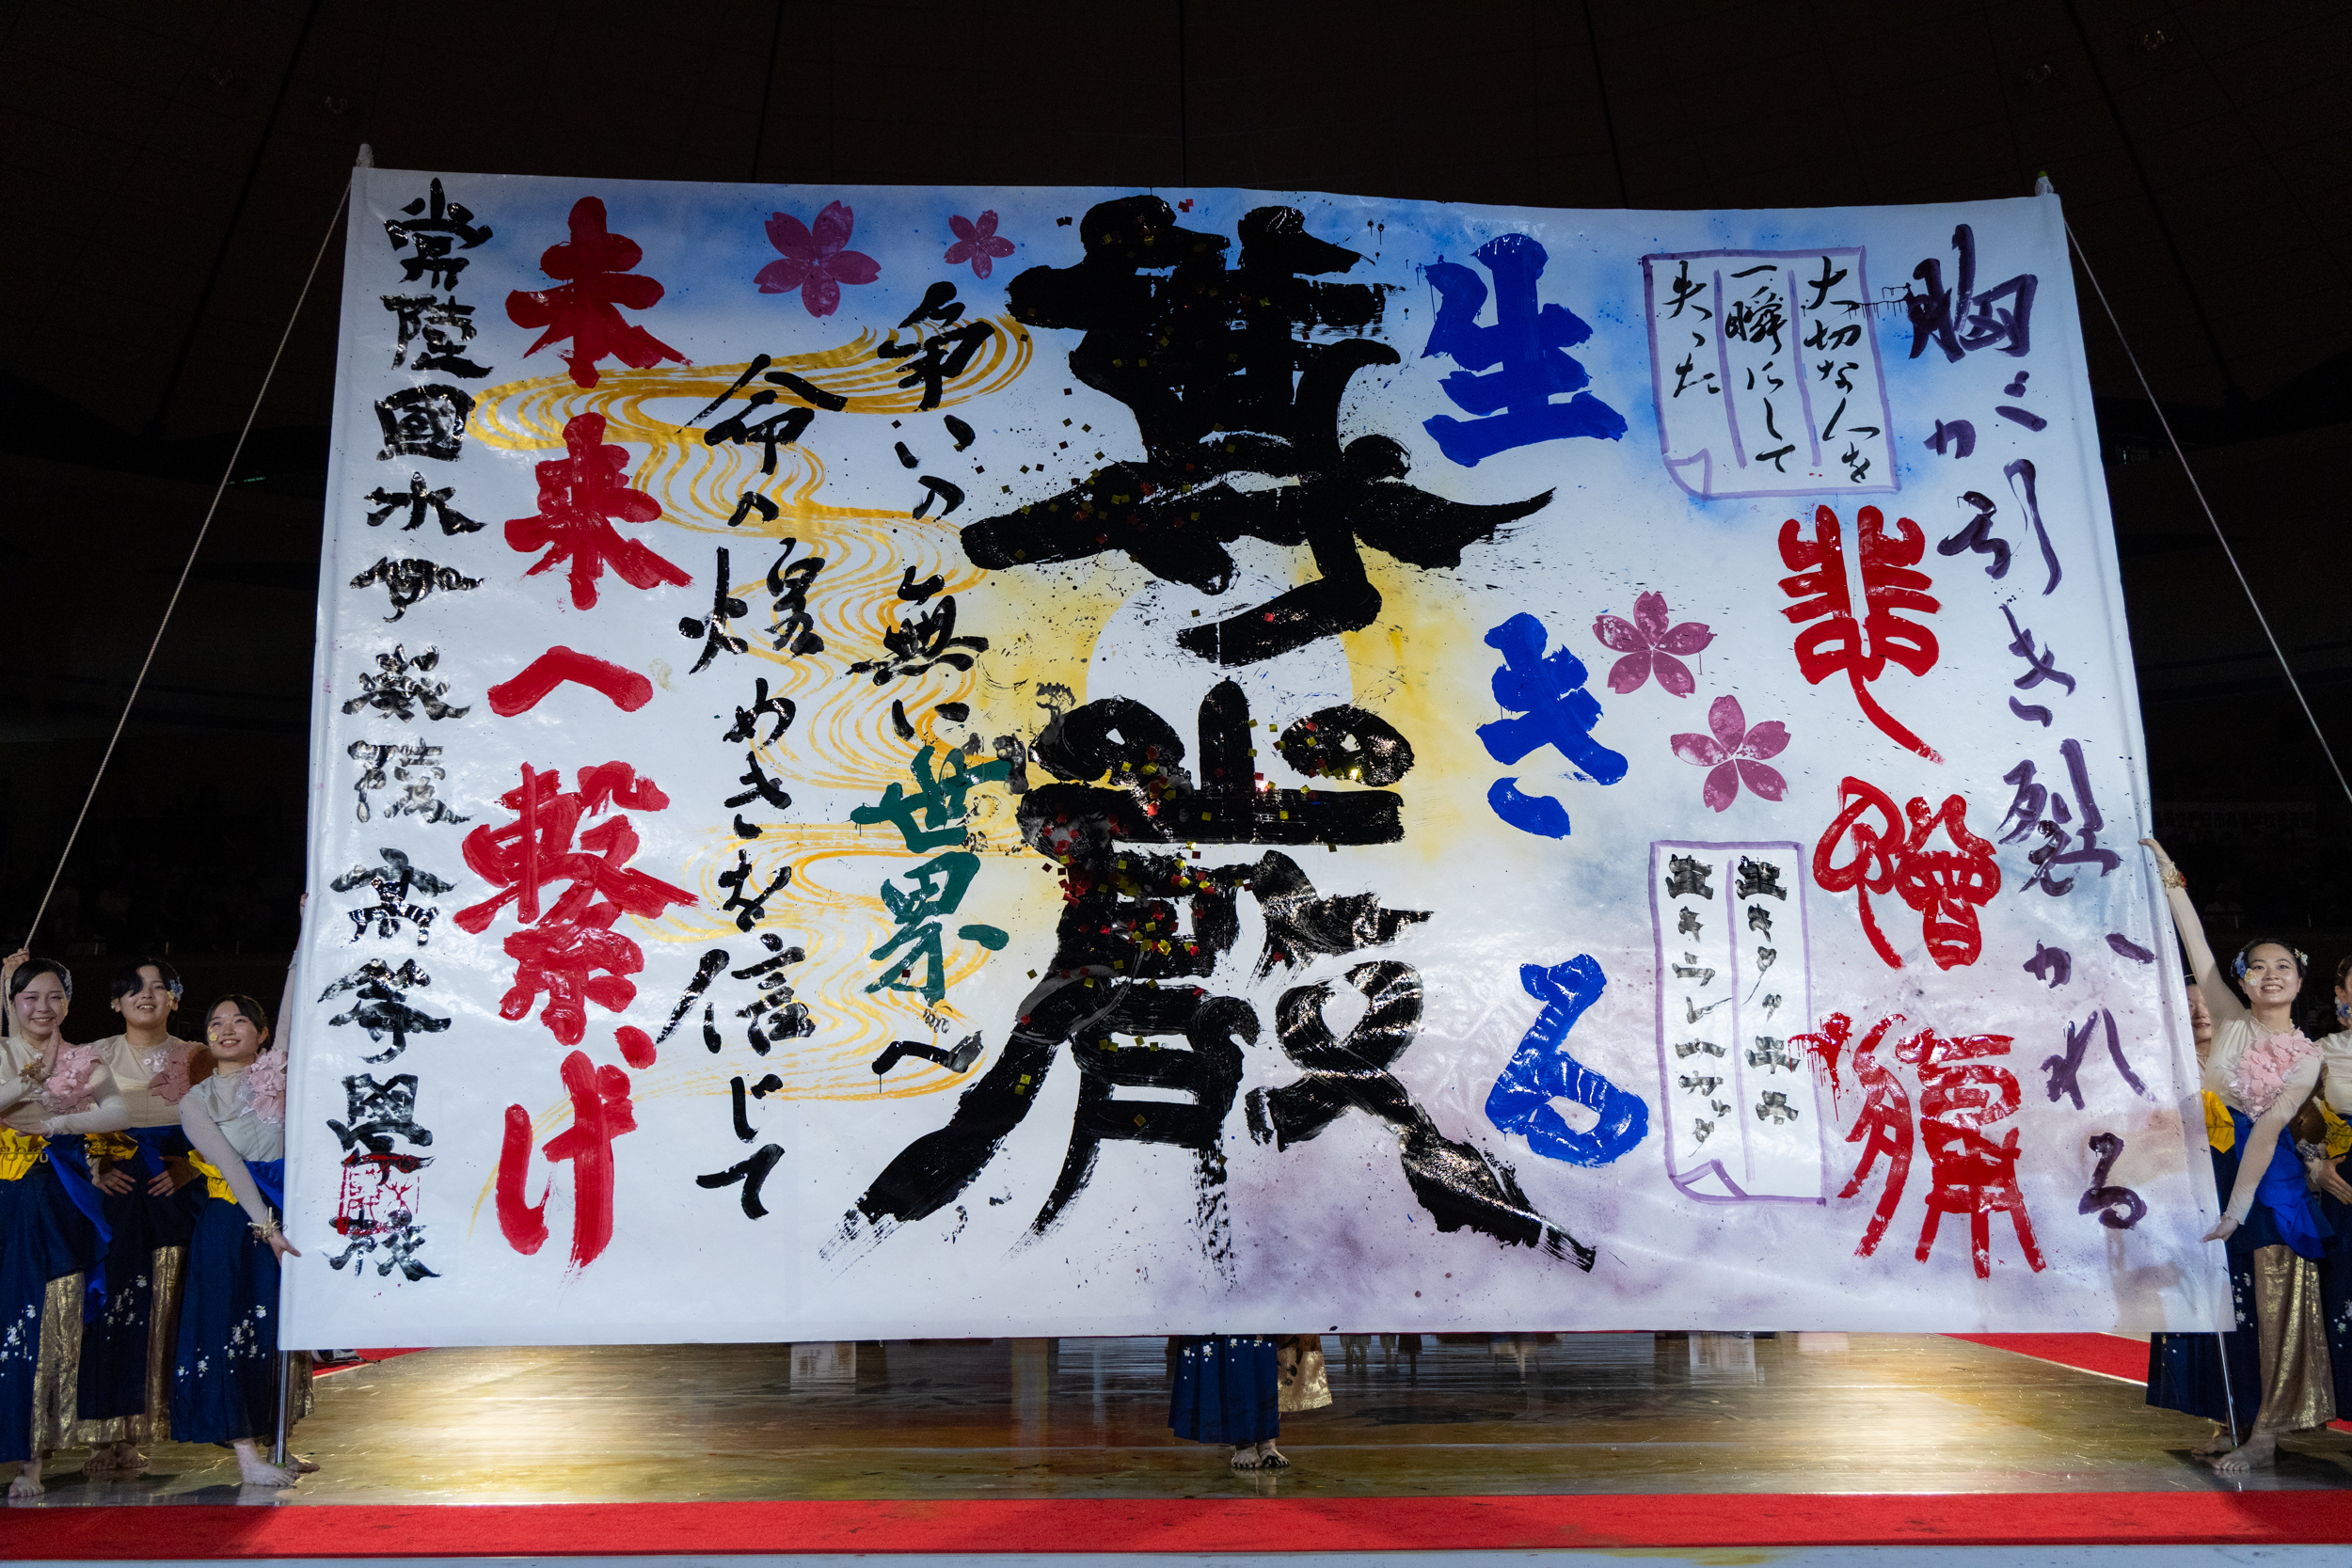 胸が引き裂かれる
大切な人を
一瞬にして
失った
悲憎痛
生キタクテモ
生キラレナカッタ
生きる
尊厳
争いの無い世界へ
命の煌めきを信じて
未来へ繋げ
常陸國水戸葵陵高等學校